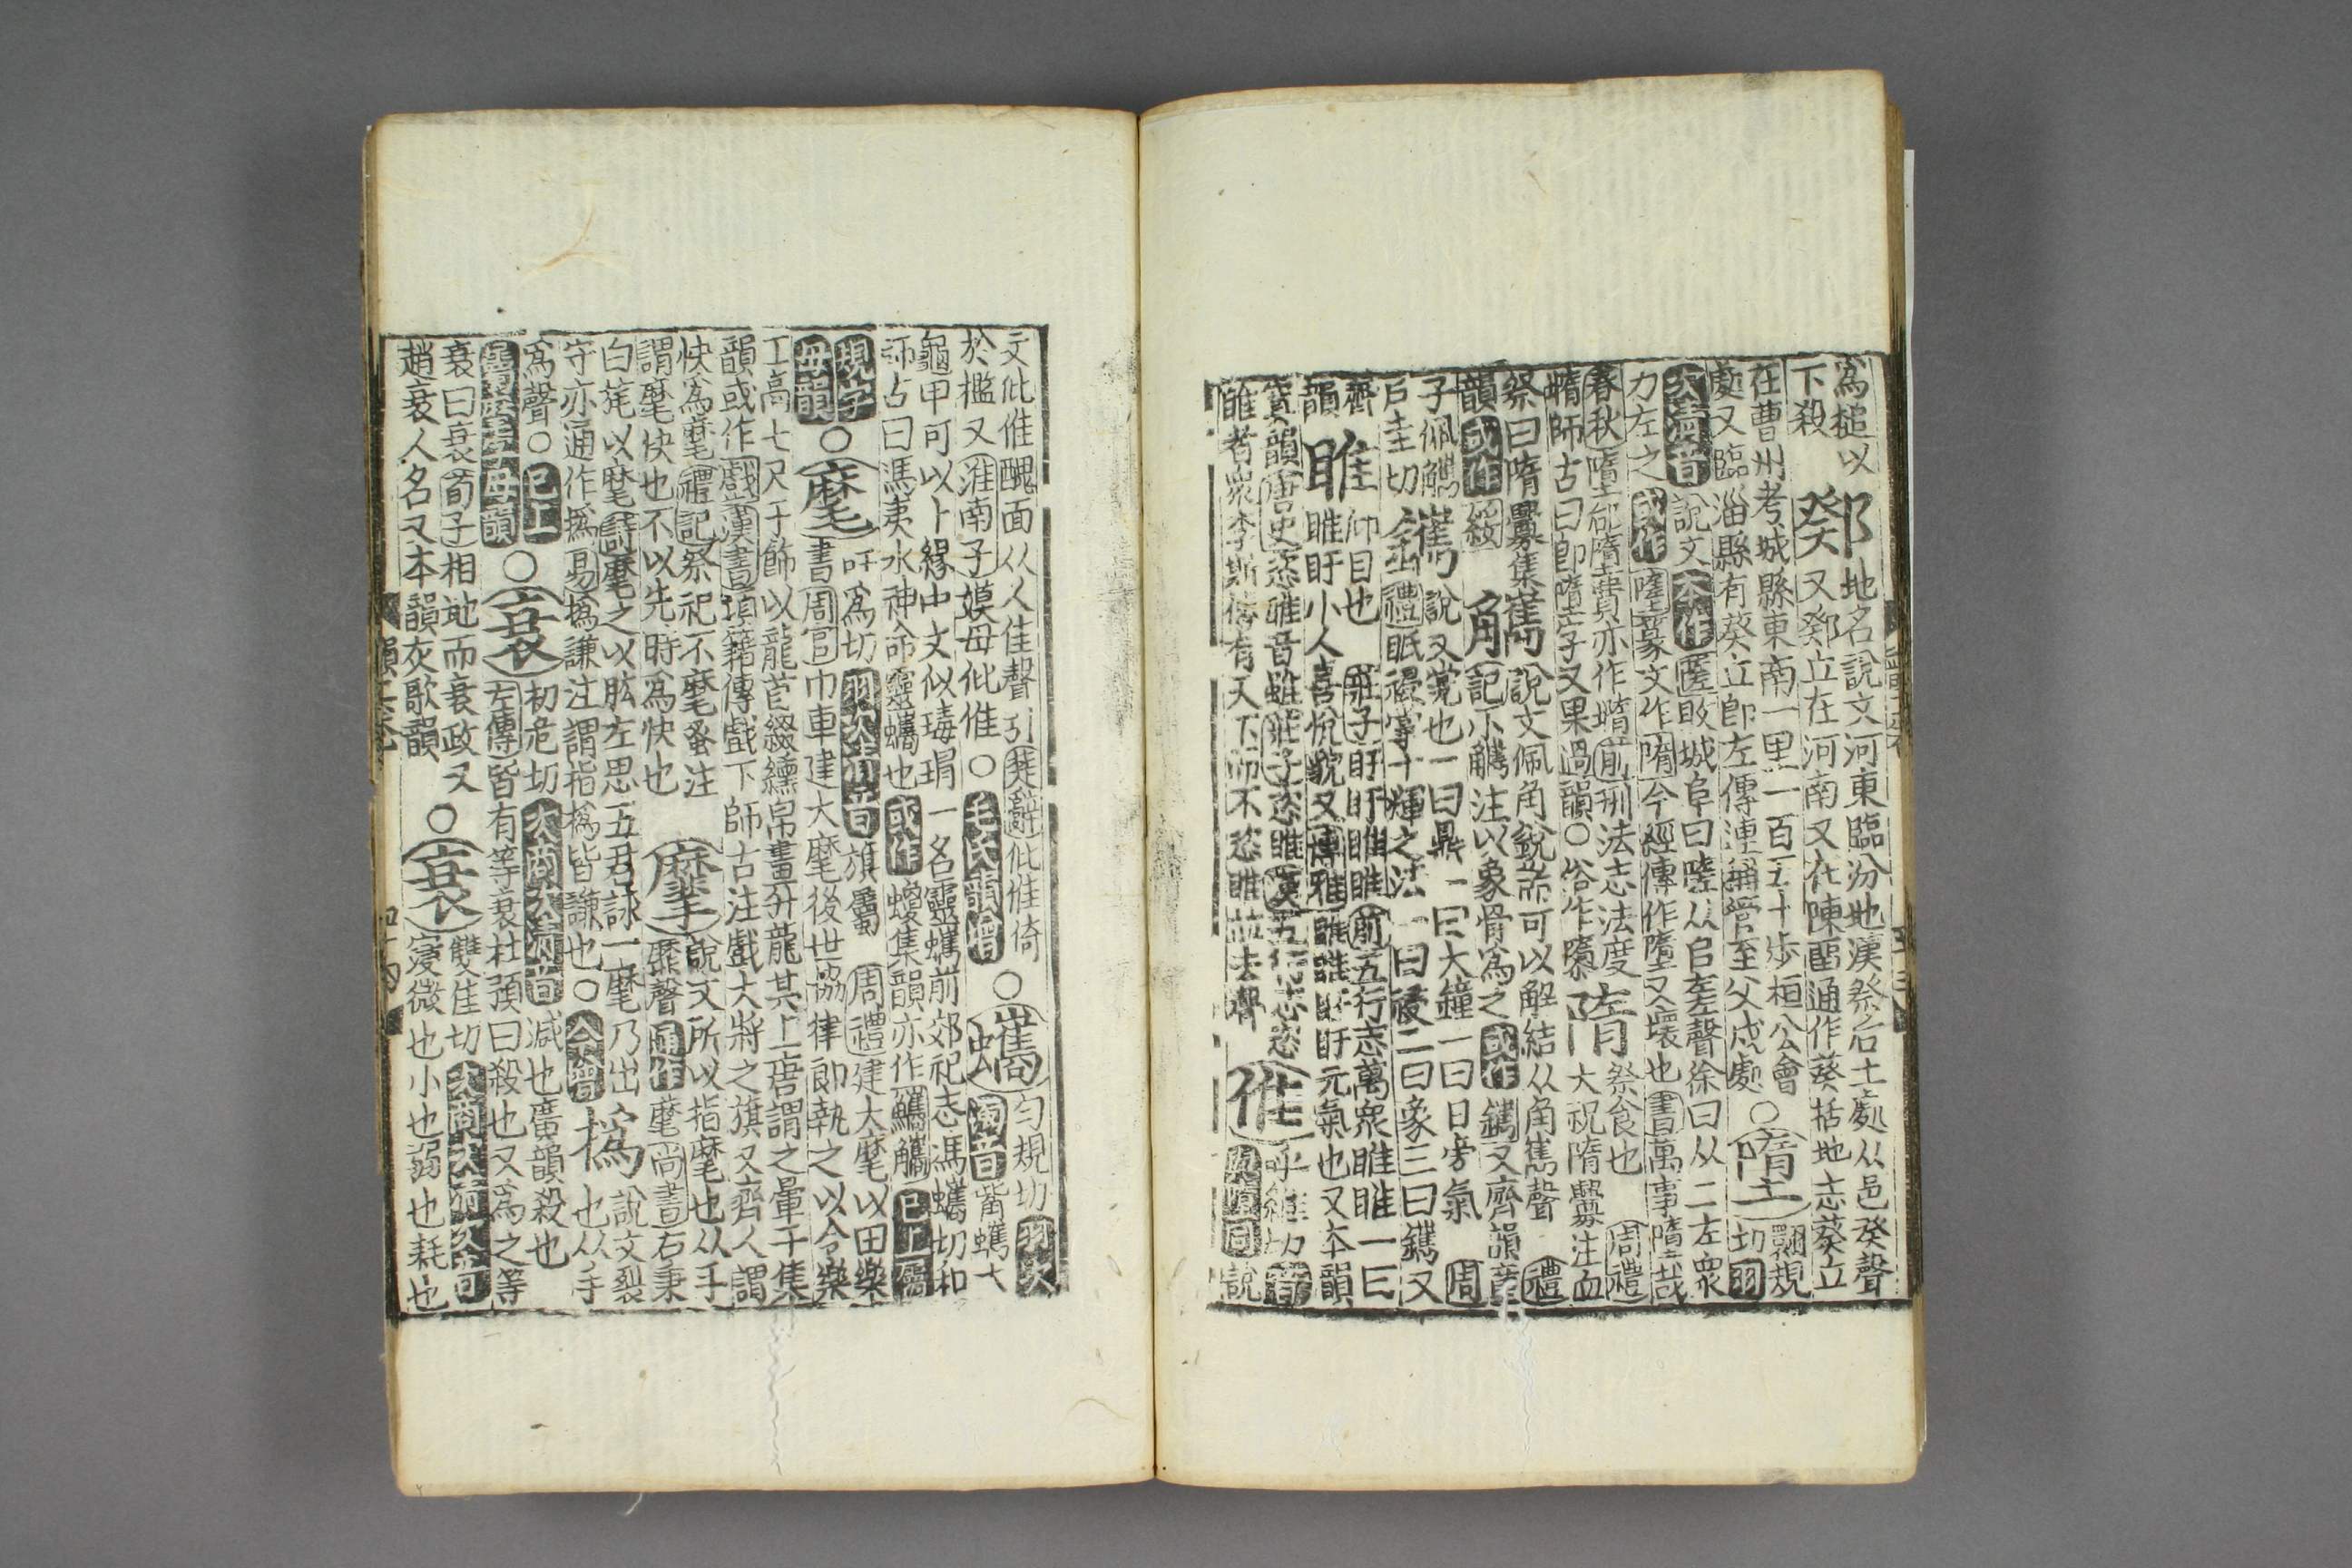 為槌以
下殺
鄈
地名說文河東臨汾地漢祭后土處从邑癸聲
又鄈立在河南又在陳畱通作葵括地志葵立
在曹州考城縣東南一里一百五十步桓公會
處又臨淄縣有葵立即左傳連稱管至父戍處
○隓
翾規
切羽
次濁音
說文本作
敗城阜曰隓从𨸏差聲徐曰从二左眾
力左之
或作
隳篆文作隋今經傳作墮又壞也書萬事墮哉
春秋墮郈墮費亦作墮前刑法志法度
師古曰即墮字又果過韻○俗作隳
隋
祭食也
周禮
大祝隋釁注血
祭曰隋釁集
韻或作綏
觿
說文佩角銳耑可以解結从角巂聲
禮
記小觿注以象骨為之或作鑴又齊韻
子佩觿
鑴
說文㼜也一曰鼎一曰大鐘一曰日旁氣
周
戶圭切
禮眡祲掌十輝之法一曰祲二曰象三曰鑴又
齊
韻
睢
仰目也莊子盱盱睢睢前五行志萬眾睢睢一曰
睢盱小人喜悅貌又博雅睢睢盱盱元氣也又本韻
寘韻唐史恣睢音雖莊子恣睢漢五行志恣
睢者眾李斯傳有天下而不恣睢並去聲
仳
呼維切音
與隳同說
文仳倠醜面从人隹聲引楚辭仳倠倚
於檻又淮南子嫫母仳倠○毛氏韻增○
蠵
勻規切羽次
濁音觜蠵大
龜甲可以卜緣中文似瑇瑁一名靈蠵前郊祀志馮蠵切和
師占曰馮夷水神命靈蠵也或作蠵集韻亦作
已上屬
規字
母韻
○麾
吁為切羽次清音旌屬
周禮建大麾以田樂
書周官巾車建大麾後世協律郎執之以令樂
工高七尺干飾以龍首綴纁帛畫升龍其上唐謂之暈干集
韻或作戲漢書項籍傳戲下師古注戲大將之旗又齊人謂
快為麾禮記祭祀不麾蚤注
謂麾快也不以先時為快也
摩
說文所以指麾也从手
靡聲通作麾尚書右秉
白旄以麾詩麾之以肱左思五君詠一麾乃出
守亦通作撝易撝謙注謂指撝皆謙也○今增
撝
說文裂
也从手
為聲○已上
屬麾字母韻
○衰
初危切次商次清音減也廣韻殺也
左傳皆有等衰杜預曰殺也又為之等
衰曰衰荀子相地而衰政又
趙衰人名又本韻灰歌韻
○衰
雙佳切次商次清次音
寖微也小也弱也耗也